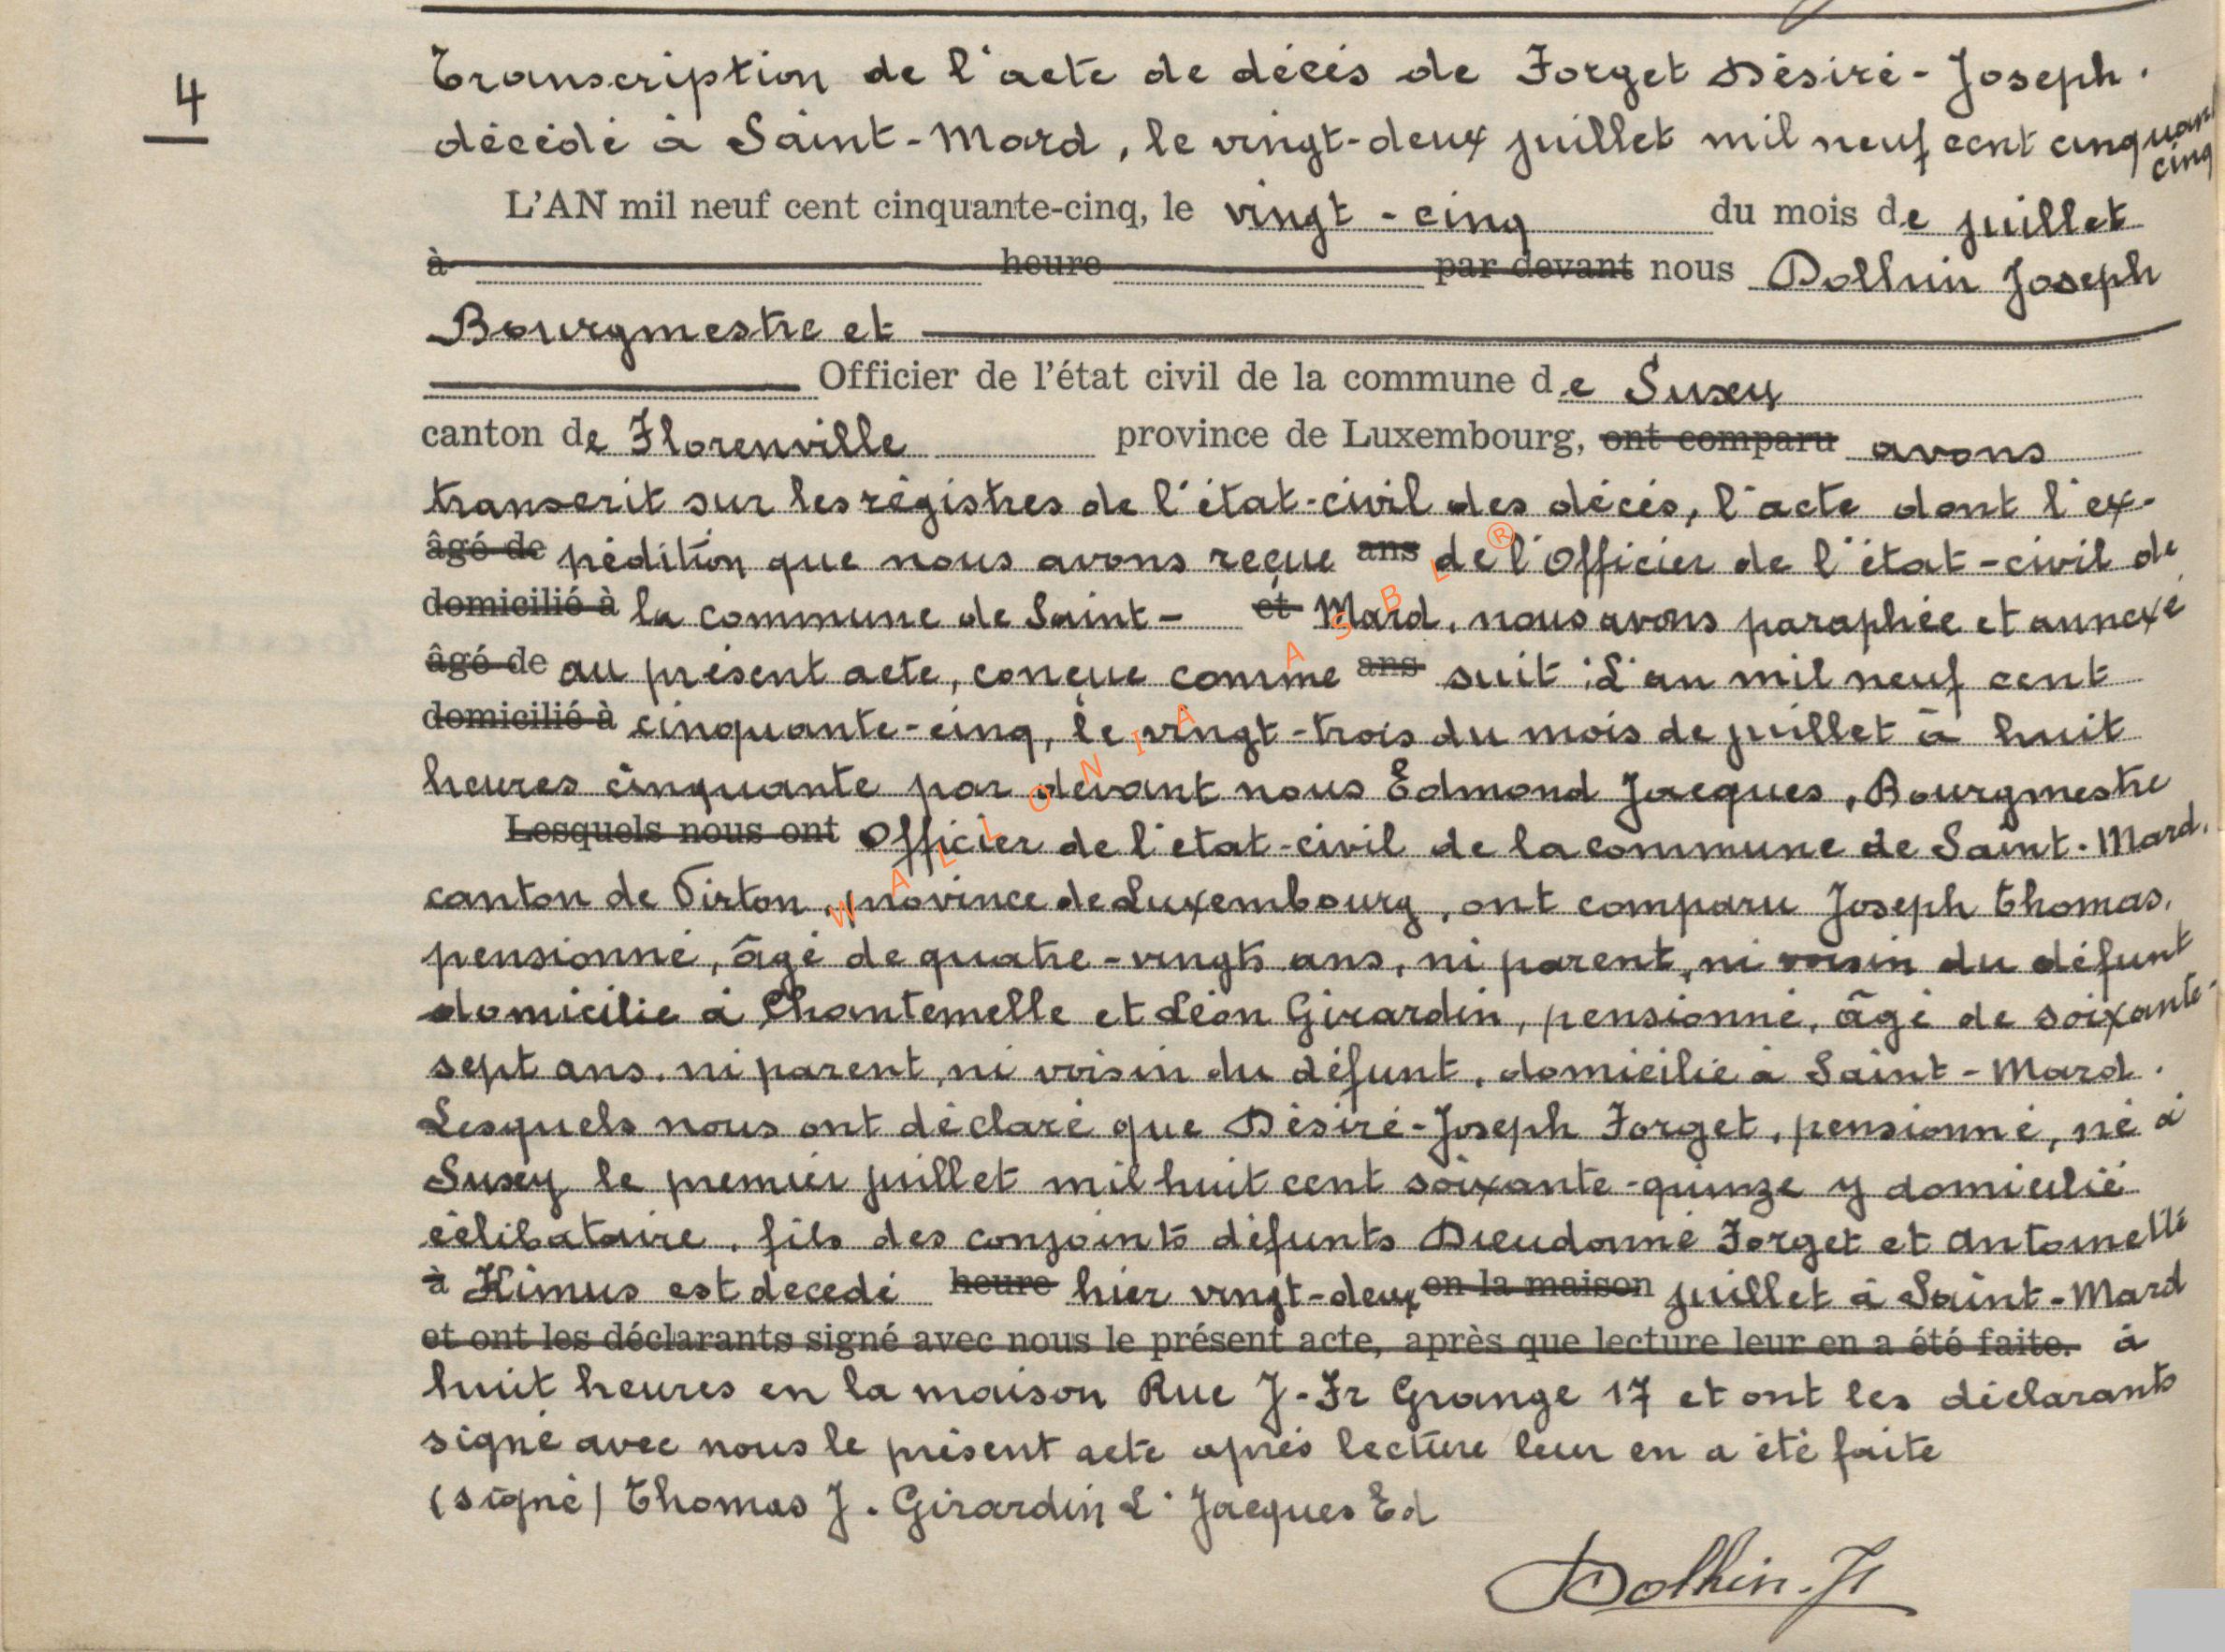 4
Transcription de l'acte de décès de Forget Désiré-Joseph.
décédé à Saint-Mard, le vingt-deux juillet mil neuf cent cinquant
cinq
L'AN mil neuf cent cinquante-cinq, le vingt-cinq du mois de juillet
à heure par devant nous Dolhin Joseph
Bourgmestre et
Officier de l'état civil de la commune de Suxy
canton de Florenville province de Luxembourg, ont comparu avons
transcrit sur les régistres de l'état-civil des décès, l'acte dont l'ex-
âgé de pédition que nous avons reçue ans de l'Officier de l'état-civil de
domicilié à la commune de Saint- et Mard, nous avons paraphée et annexé
âgé de au présent acte, conçue comme ans suit : L'an mil neuf cent
domicilié à cinquante-cinq, le vingt-trois du mois de juillet à huit
heures cinquante par devant nous Edmond Jacques, Bourgmestre
Lesquels nous ont Officier de l'etat-civil de la commune de Saint-Mard,
canton de Virton, province de Luxembourg, ont comparu Joseph Thomas,
pensionné, âgé de quatre-vingts ans, ni parent, ni voisin du défunt
domicilié à Chantemelle et Léon Girardin, pensionné, âgé de soixante-
sept ans, ni parent, ni voisin du défunt, domicilié à Saint-Mard.
Lesquels nous ont déclaré que Désiré-Joseph Forget, pensionné, né à
Suxy le premier juillet mil huit cent soixante-quinze y domicilié
célibataire, fils des conjoints défunts Dieudonné Forget et Antoinette
à Himus est decedé heure hier vingt-deux en la maison juillet à Saint-Mard
et ont les déclarants signé avec nous le présent acte, après que lecture leur en a été faite. à
huit heures en la maison Rue J-Fr Grange 17 et ont les déclarants
signé avec nous le présent acte après lecture leur en a été faite
(signé) Thomas J. Girardin L. Jacques Ed
Dolhin. Js
WALLONIA ASBL ®